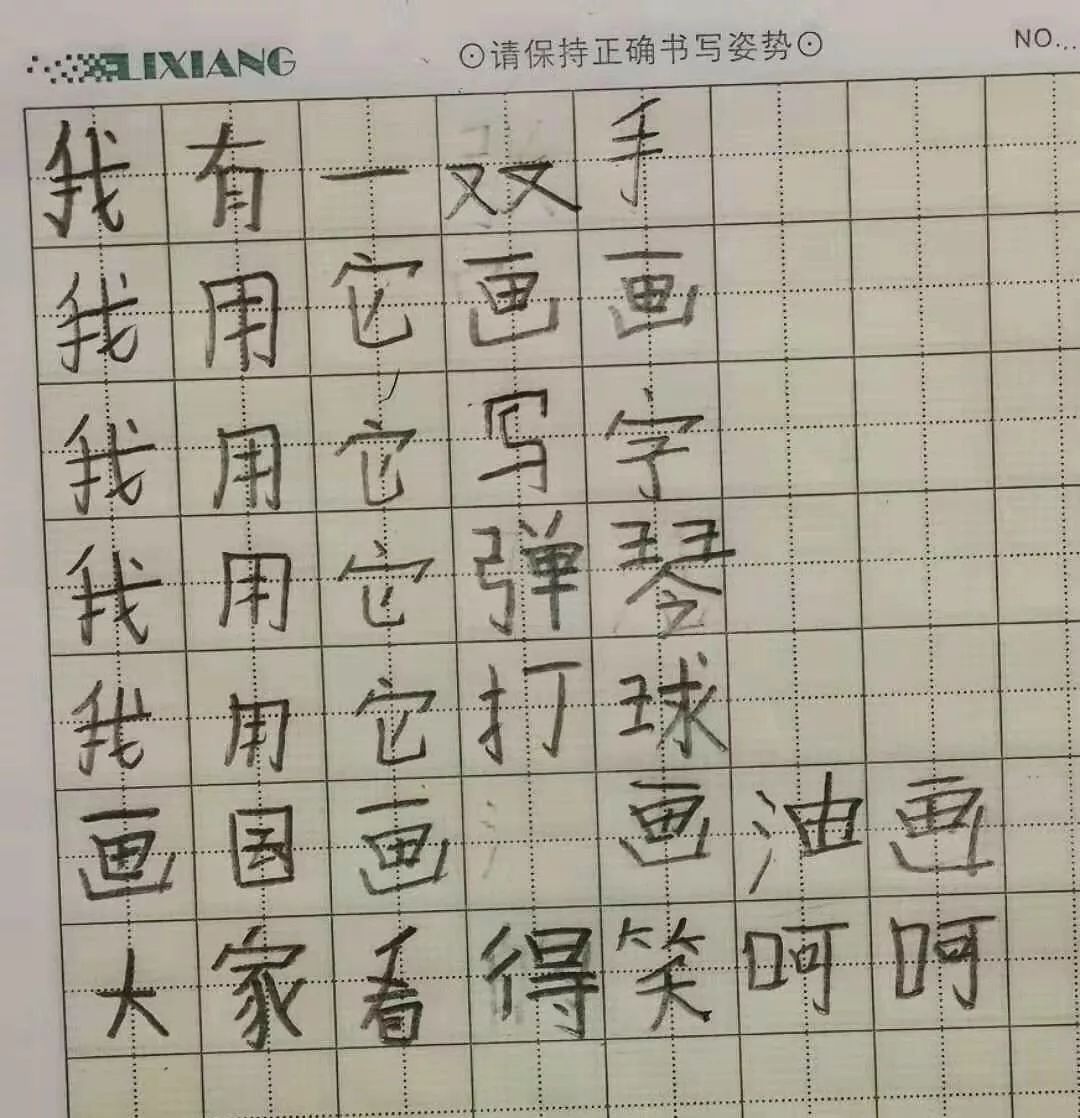 LIXIANG ⊙请保持正确书写姿势⊙ NO...
我有一双手
我用它画画
我用它写字
我用它弹琴
我用它打球
画国画 画油画
大家看得笑呵呵